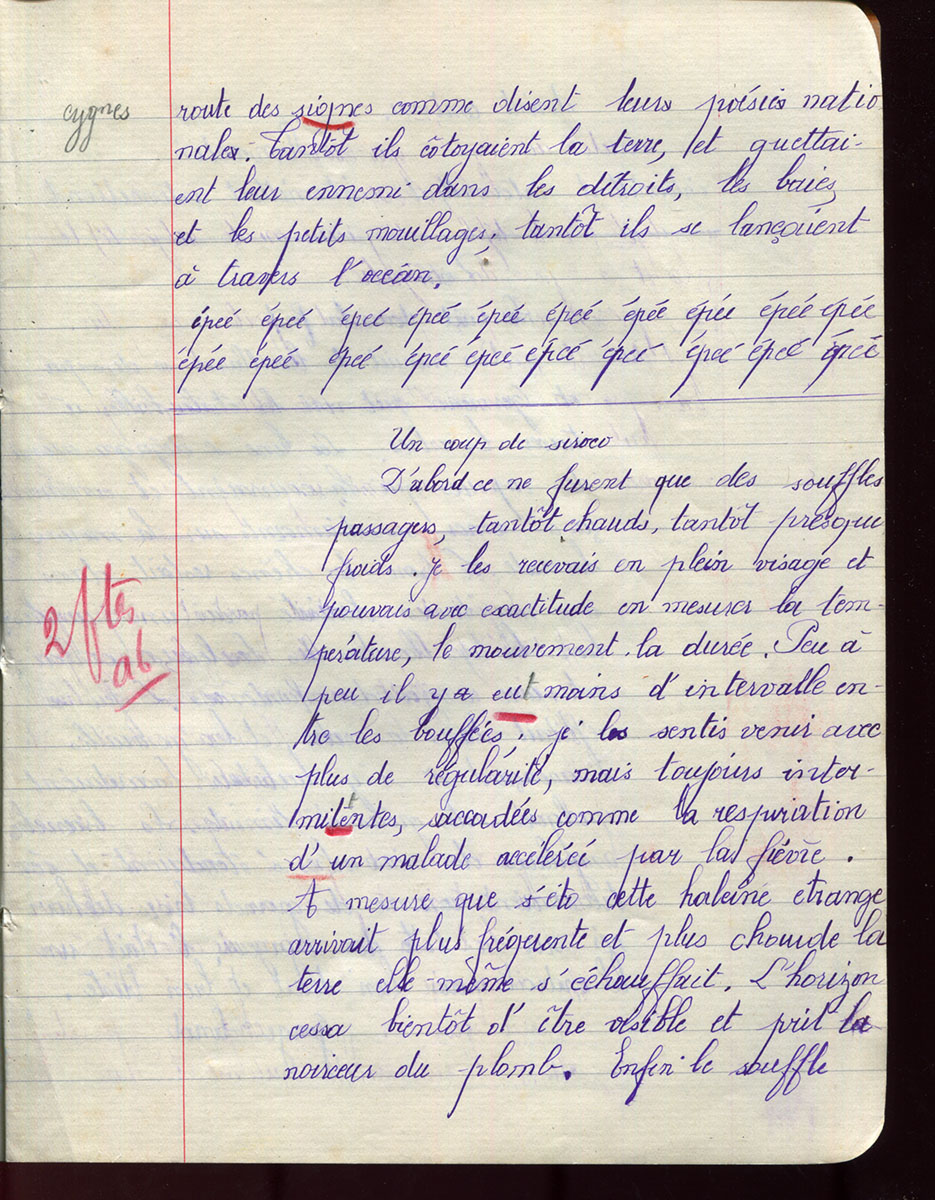 cygnes
route des signes comme disent leurs poésies natio
nales. Tantôt ils côtoyaient la terre, et guettai-
ent leur ennemi dans les détroits, les baies,
et les petits mouillages; tantôt ils se lançaient
à travers l'océan.
épée épée épée épée épée épée épée épée épée épée
épée épée épée épée épée épée épée épée épée épée
Un coup de siroco
D'abord ce ne furent que des souffles
passagers, tantôt chauds, tantôt presque
froids. je les recevais en plein visage et
pouvais avec exactitude en mesurer la tem-
pérature, le mouvement. la durée. Peu à
2 ftes
ab
peu il y eut moins d'intervalle en-
tre les bouffées. je les sentis venir avec
plus de régularité, mais toujours inter-
mittentes, saccadées comme la respiration
d'un malade accélérée par la fièvre.
A mesure que cette haleine etrange
arrivait plus fréquente et plus chaude la
terre elle même s'échauffait. L'horizon
cessa bientôt d'être visible et prit la
noirceur du plomb. Enfin le souffle